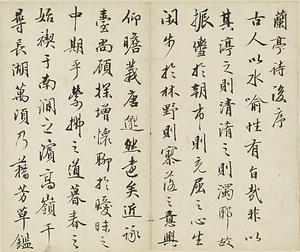 蘭亭詩後序
古人以水喻性有旨哉非以
其渟之則清淆之則濁耶故
振轡於朝市則充屈之心生
閑步於林野則寥落之意興
仰瞻羲唐邈然遠矣近詠
臺閣顧探增懷聊於曖昧之
中期乎瑩拂之道暮春之
始禊于南澗之濱高嶺千
尋長湖萬頃乃藉芳草鑑